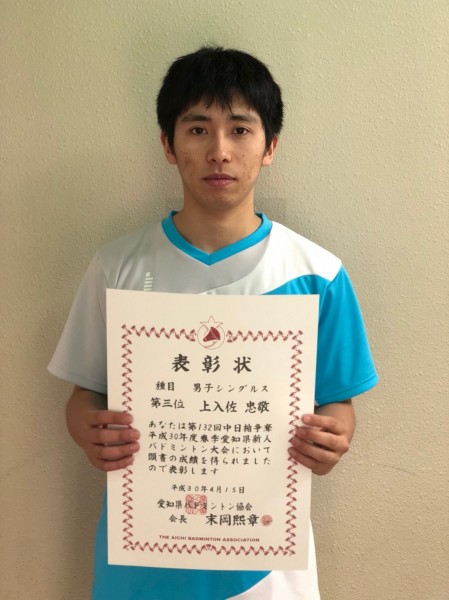 表彰状
種目 男子シングルス
第三位 上入佐 忠敬
あなたは第132回中日旗争奪
平成30年度春季愛知県新人
バドミントン大会において
頭書の成績を得られました
ので表彰します
平成30年4月15日
愛知県バドミントン協会
会長 末岡熙章
THE AICHI BADMINTON ASSOCIATION